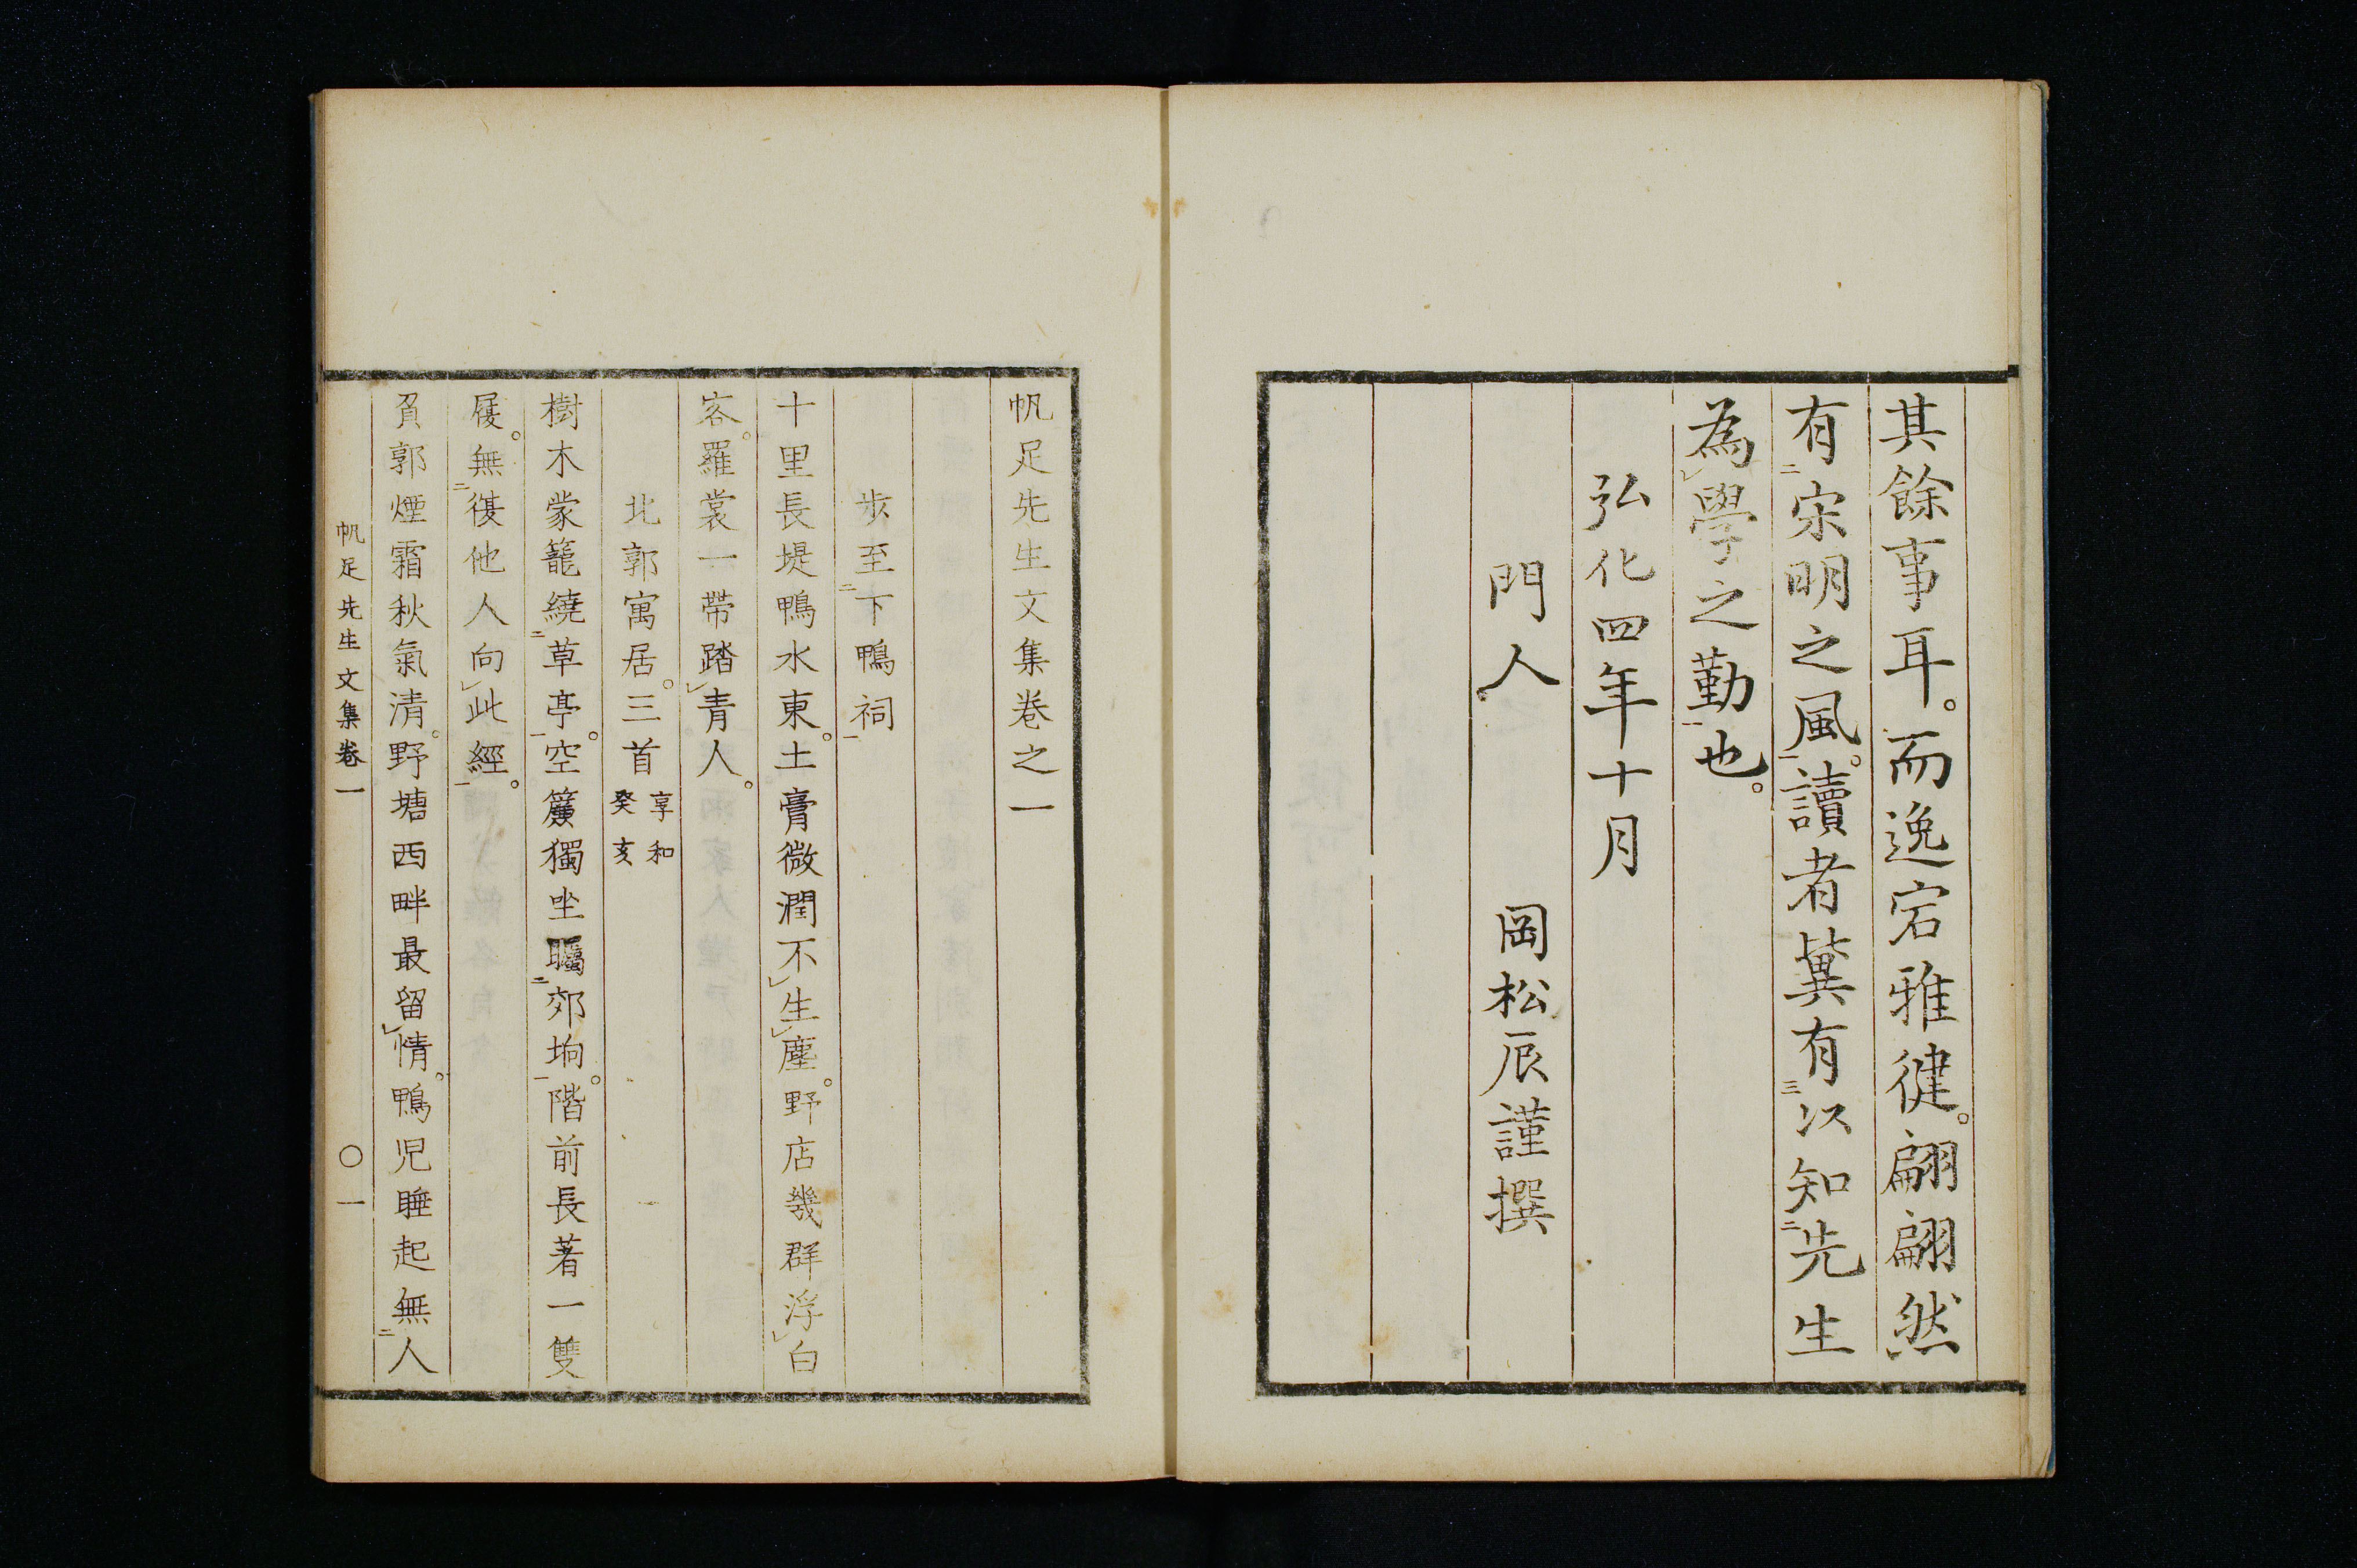 其餘事耳。而逸宕雅健。翩翩然
有二宋明之風一。讀者冀有三以知二先生
為レ學之勤一也。
弘化四年十月
門人 岡松辰謹撰
帆足先生文集卷之一
歩至二下鴨祠一
十里長堤鴨水東。土膏微潤不レ生レ塵。野店幾群浮レ白
客。羅裳一帶踏レ青人。
北郭寓居。三首 享和癸亥
樹木蒙籠繞二草亭一。空簾獨坐矚二郊坰一。階前長著一雙
屐。無二復他人向レ此經一。
負郭煙霜秋氣清。野塘西畔最留レ情。鴨児睡起無二人
帆足先生文集卷一 〇一